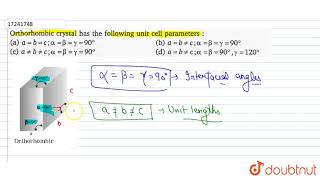 17241748
Orthorhombic crystal has the following unit cell parameters :
(a) a = b = c ; α = β = γ = 90°
(b) a = b ≠ c ; α = β = γ = 90°
(c) a ≠ b ≠ c ; α = β = γ = 90°
(d) a = b ≠ c ; α = β = 90° , γ = 120°
α = β = γ = 90° → Interfacial angles
a ≠ b ≠ c → Unit lengths
c
a
b
Orthorhombic
doubtnut